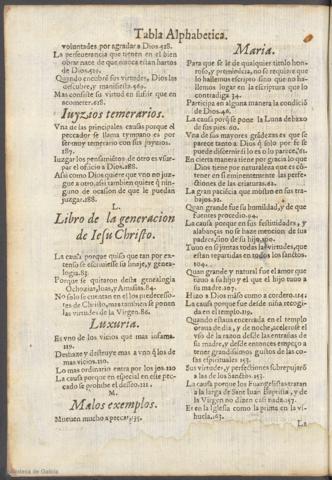 Tabla Alphabetica.
voluntades por agradar a Dios.428.
La perseuerancia que tienen en el bien
obrar nace de que nunca estan hartos
de Dios.429.
Quando encubre sus virtudes, Dios las
descubre, y manifiesta.469.
Mas consiste su virtud en sufrir que en
acometer.618.
Iuyzios temerarios.
Vna de las principales causas porque el
peccador se llama tympano es por
ser muy temerario con sus juyzios.
187.
Iuzgar los pensamientos de otro es vsur-
par el oficio a Dios.188.
Assi como Dios quiere que vno no juz-
gue a otro, assi tambien quiere q̃ nin-
guno de ocasion de que le puedan
juzgar.188.
L.
Libro de la generacion
de Iesu Christo.
La causa porque quiso que tan por ex-
tenso se escriuiesse su linaje, y genea-
logia.83.
Porque se quitaron desta genealogia
Ochozias, Ioas, y Amasias.84.
No solo se cuentan en el los predecesso-
res de Christo, mas tambien se ponen
las virtudes de la Virgen.86.
Luxuria.
Es vno de los vicios que mas infama.
119.
Deshaze y destruye mas a vno q̃ los de
mas vicios.110.
Lo mas ordinario entra por los ojos.110
La causa porque en especial en este pec-
cado se prohibe el desseo.111.
M.
Malos exemplos.
Mueuen mucho a pecar.135.
Maria.
Para que se le de qualquier titulo honr-
roso, y preminencia, no se requiere que
lo hallemos escripto sino que no ha-
llemos lugar en la escriptura que lo
contradiga.34.
Participa en alguna manera la condició
de Dios.46.
La causa porq̃ se pone la Luna debaxo
de sus pies.60.
Vna de sus mayores grãdezas es que se
parece tanto a Dios q̃ solo por fe se
puede discernir si lo es o lo parece.61.
En cierta manera tiene por gracia lo que
Dios tiene por naturaleza que es có-
tener en si eminentemente las perfec-
tiones de las criaturas.62.
La gran paciencia que mostro en sus tra-
bajos.92.
Quan grande fue su humildad, y de que
fuentes procedio.94.
La causa porque en sus festiuidades, y
alabanças no se hace mencion de sus
padres, sino de su hijo.100.
Tuuo en si juntas todas las virtudes, que
estan repartidas en todos los sanctos.
104.
Quan grande y natural fue el amor que
tuuo a su hijo y el que el hijo tuuo a
su madre.107.
Hizo a Dios máso como a cordero.114.
La causa porque fue desde niña recogi-
da en el templo.119.
Quando estaua encerrada en el templo
oraua de dia, y de noche, acelerose el
vso de la razon desde las entrañas de
su madre, y desde entonces empeço a
tener grandissimos gustos de las co-
sas espirituales.153.
Sus virtudes, y perfectiones sobrepujaró
a las de los Sanctos.153.
La causa porque los Euangelistas tratan
a la larga de Sant Iuan Baptista, y de
la Virgen no dizen casi nada.157.
Es en la Iglesia como la prima en vi-
huela.163.
La
Biblioteca de Galicia